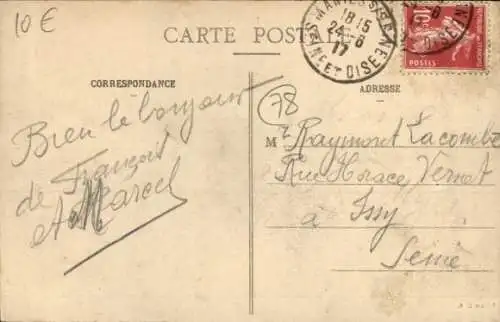 10 €
CARTE POSTALE
MANTES S/SEINE
18 15
24 - 8
17
SEINE ET OISE
10c
POSTES
CORRESPONDANCE
ADRESSE
78
Bien le bonjour
de François
et Marcel
Mr Raymont Lacombe
Rue Horace Vernet
à Issy
Seine